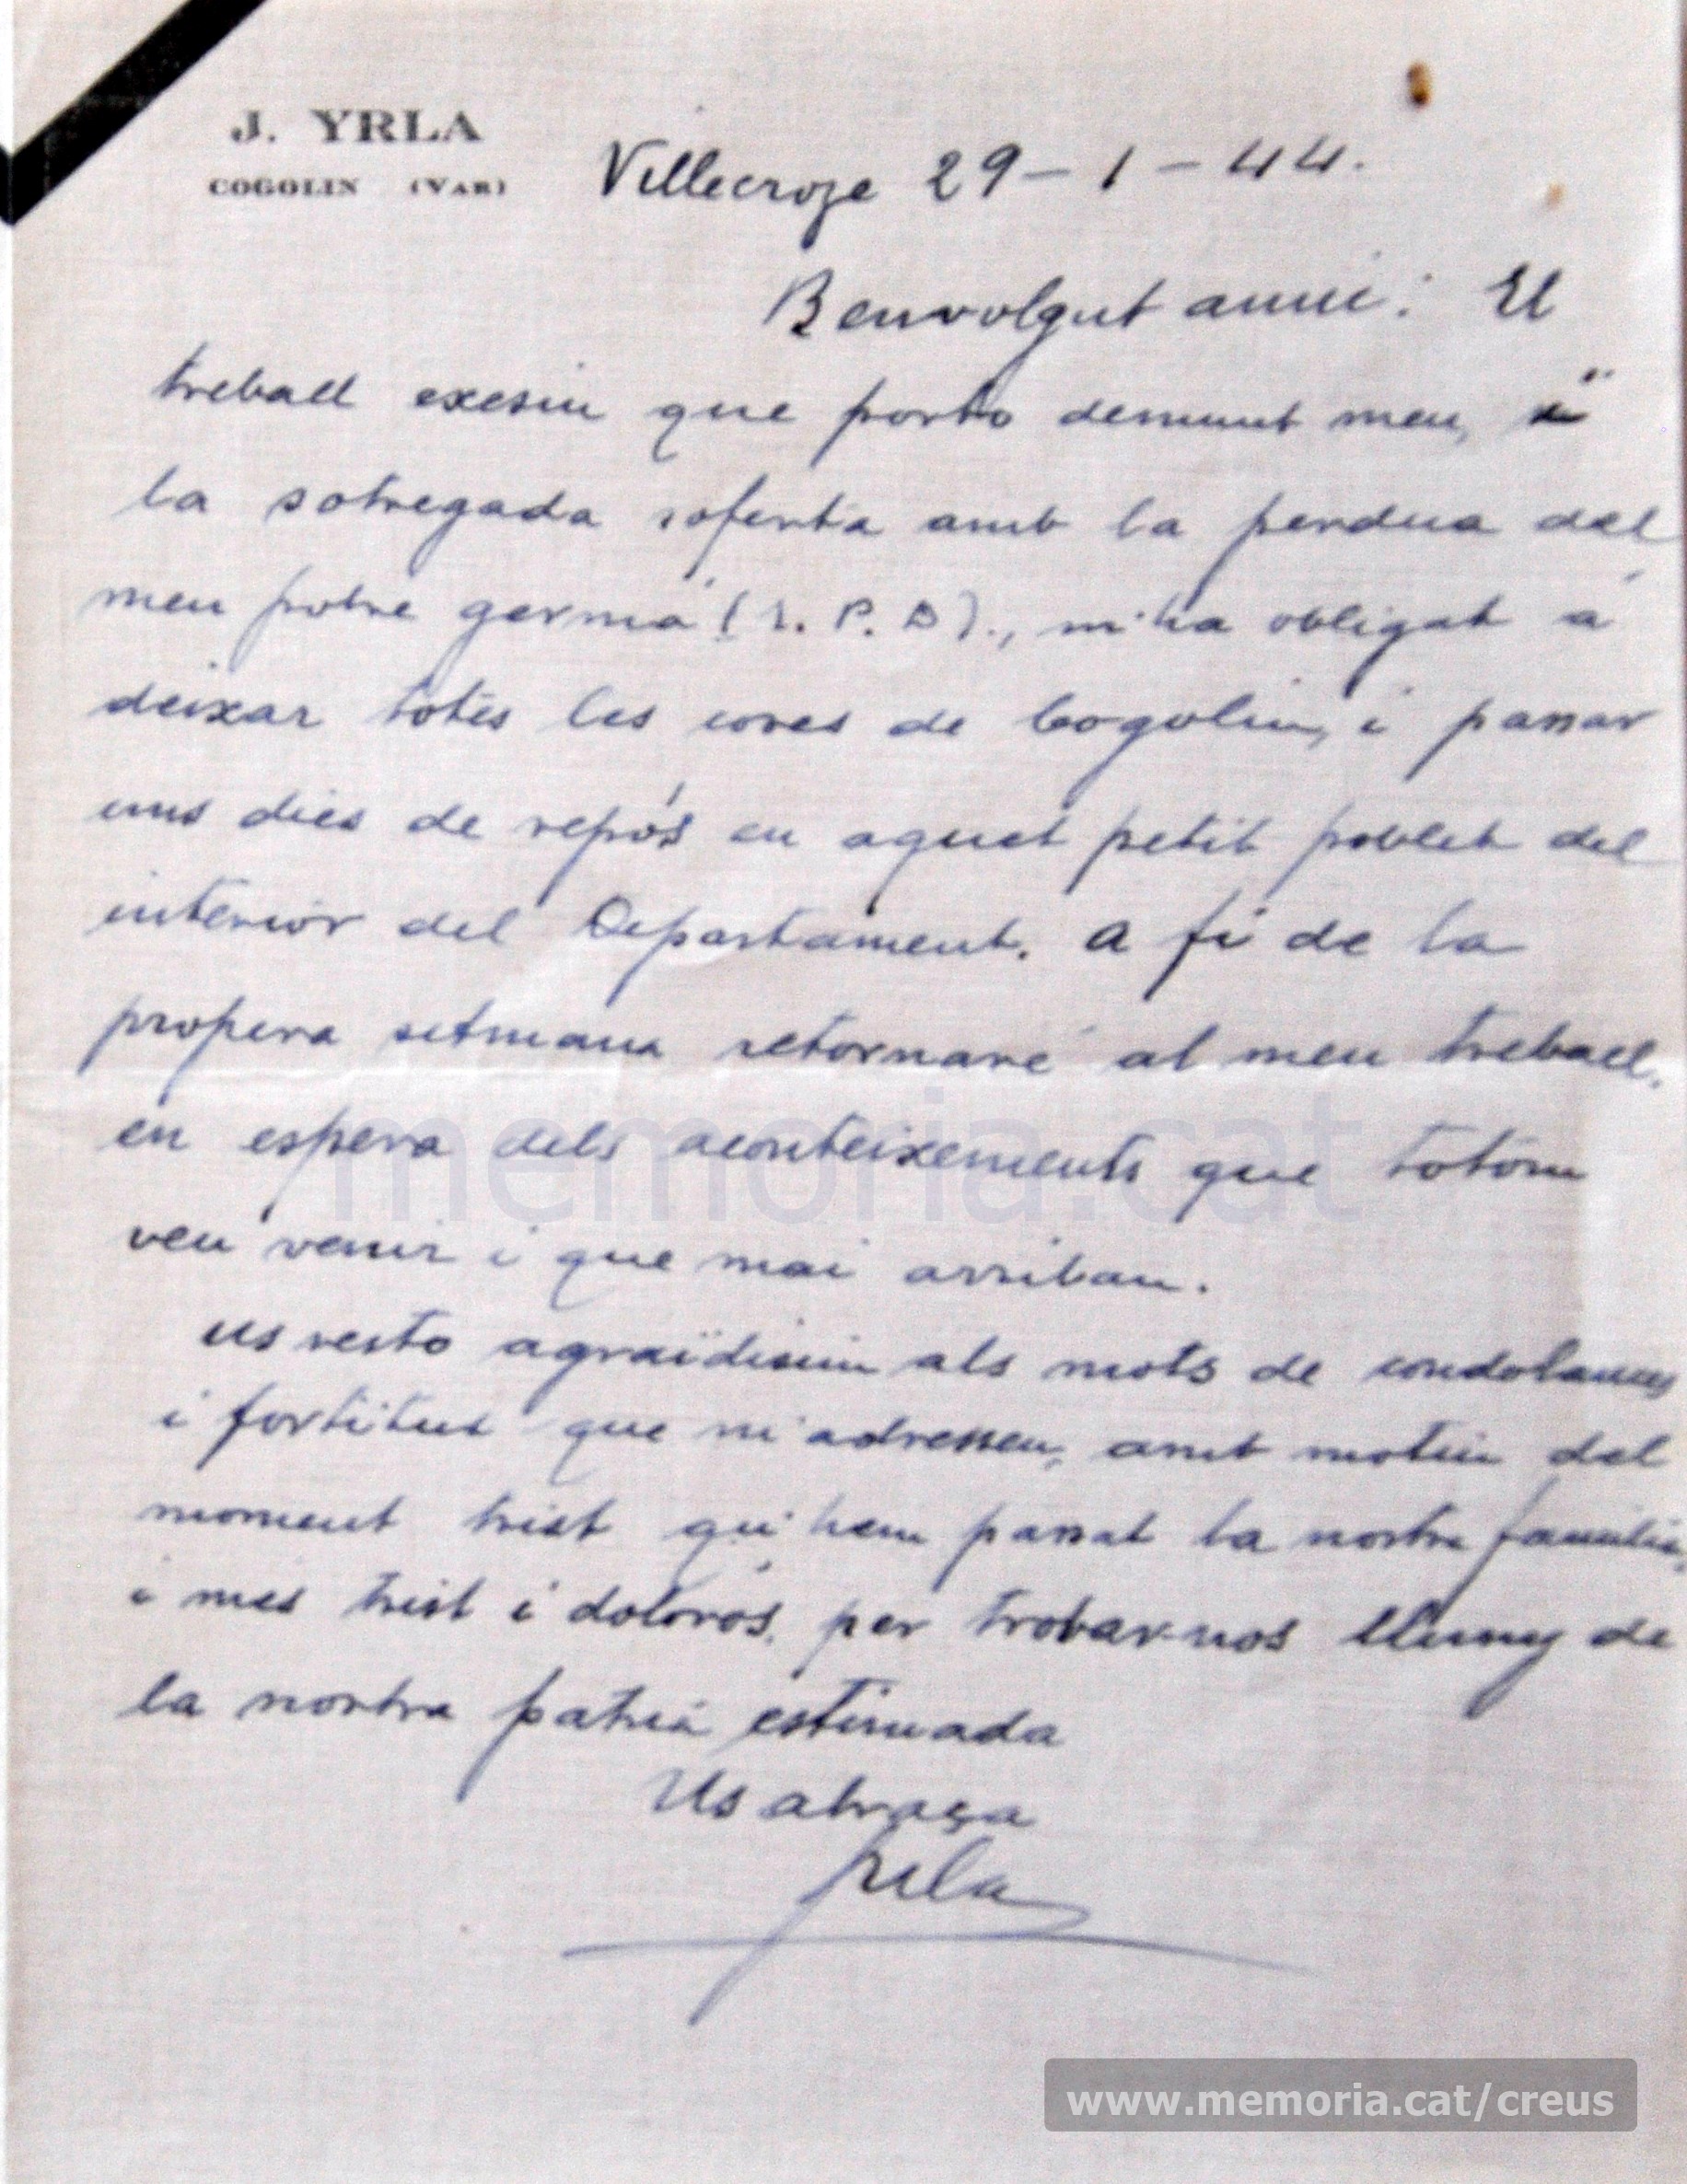 J. YRLA
COGOLIN (VAR)
Villecroze 29-1-44.
Benvolgut amic: El
treball exesiu que porto demunt meu, i
la sotregada soferta amb la perdua del
meu pobre germá (q. P. D)., m'ha obligat á
deixar totes les coses de Cogolin, i passar
uns dies de repós en aquet petit poblet del
interior del Departament. A fi de la
propera setmana retornaré al meu treball,
en espera dels aconteixements que totom
veu venir i que mai arriban.
Us resto agraïdisim als mots de condolances
i fortitut que m'adresseu, amb motiu del
moment trist qu'hem passat la nostra familia,
i mes trist i dolorós, per trobar-nos lluny de
la nostra patria estimada
Us abraça
Yrla
memoria.cat
www.memoria.cat/creus